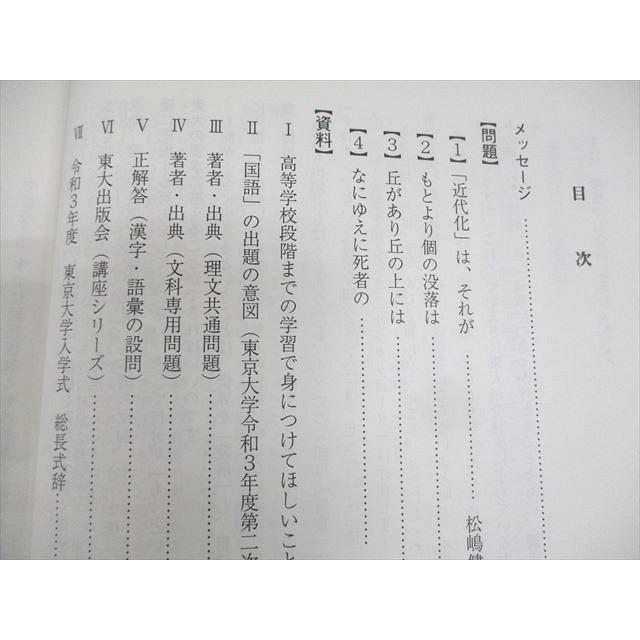 目次
メッセージ……………………………
【問題】
【1】「近代化」は、それが……………………松嶋健
【2】もとより個の没落は……………………
【3】丘があり丘の上には……………………
【4】なにゆえに死者の……………………
【資料】
Ⅰ 高等学校段階までの学習で身につけてほしいこと
Ⅱ 「国語」の出題の意図（東京大学令和3年度第二次
Ⅲ 著者・出典（理文共通問題）……………………
Ⅳ 著者・出典（文科専用問題）……………………
Ⅴ 正解答（漢字・語彙の設問）……………………
Ⅵ 東大出版会（講座シリーズ）……………………
Ⅶ 令和3年度 東京大学入学式 総長式辞……